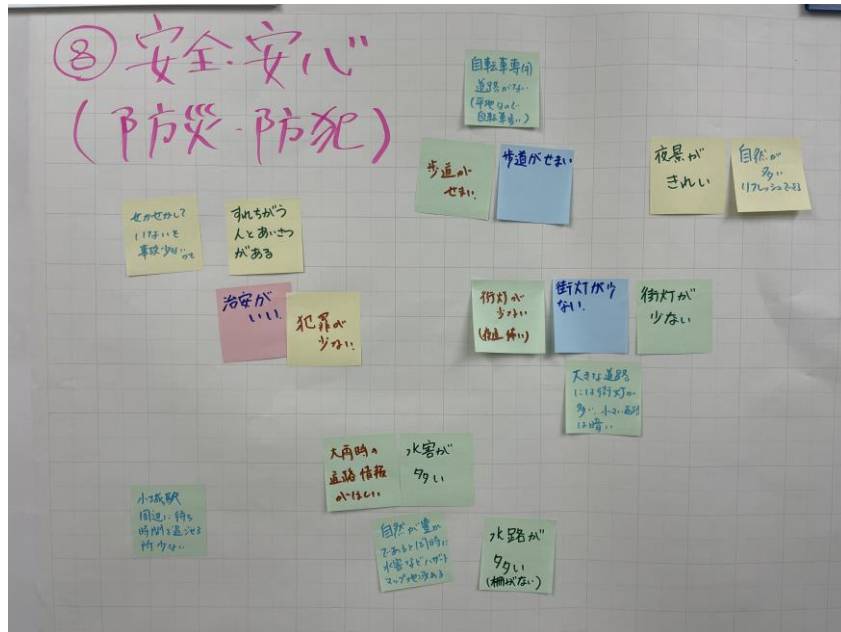 ⑧安全・安心
(防災・防犯)
自転車専用
道路がない
(平地なので
自転車多い)
歩道が
せまい
歩道がせまい
夜景が
きれい
自然が
多い
リフレッシュできる
せかせかして
いないを
事故少ないかも
すれちがう
人とあいさつ
がある
治安が
いい
犯罪が
少ない
街灯が
少ない
(夜道怖い)
街灯が少
ない
街灯が
少ない
大きな道路
には街灯が
多い、小さい道路
は暗い
大雨時の
道路情報
がほしい
水害が
多い
小城駅
周辺に待ち
時間を過ごせる
所少ない
自然が豊か
であると同時に
水害などハザード
マップ
水路が
多い
(柵がない)